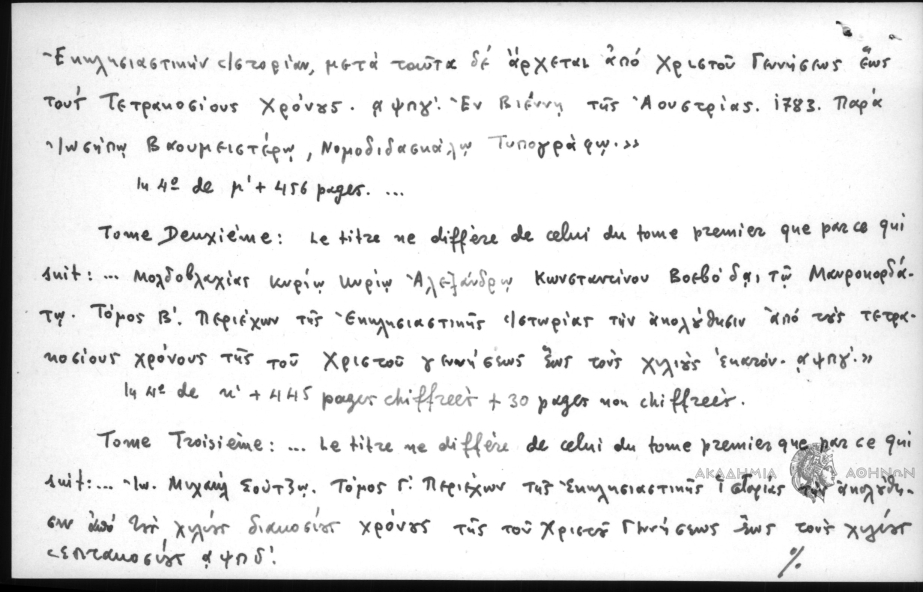 Ἐκκλησιαστικὴν Ἱστορίαν, μετὰ ταῦτα δέ ἄρχεται ἀπό Χριστοῦ Γεννήσεως ἕως
τούς Τετρακοσίους Χρόνους. αψπγ'. Ἐν Βιέννῃ τῆς Ἀουστρίας. 1783. Παρά
Ἰωσήπῳ Βαουμειστέρῳ, Νομοδιδασκάλῳ Τυπογράφῳ.»
In 4º de μ' + 456 pages. ...
Tome Deuxième: Le titre ne diffère de celui du tome premier que par ce qui
suit: ... Μολδοβλαχίας κυρίῳ κυρίῳ Ἀλεξάνδρῳ Κωνσταντίνου Βοεβόδᾳι τῷ Μαυροκορδά-
τῳ. Τόμος Β'. Περιέχων τῆς Ἐκκλησιαστικῆς Ἱστωρίας τὴν ἀκολούθησιν ἀπό τοὺς τετρα-
κοσίους χρόνους τῆς τοῦ Χριστοῦ γεννήσεως ἕως τοὺς χιλίους ἑκατόν. αψπγ'.»
In 4º de κ' + 445 pages chiffreés + 30 pages non chiffreés.
Tome Troisième: ... Le titre ne diffère de celui du tome premier que par ce qui
suit:... Ἰω. Μιχαὴλ Σούτζῳ. Τόμος Γ'. Περιέχων τῆς Ἐκκλησιαστικῆς Ἱστορίας τὴν ἀκολούθη-
σιν ἀπό τοὺς χιλίους διακοσίους χρόνους τῆς τοῦ Χριστοῦ Γεννήσεως ἕως τοὺς χιλίους
ἑπτακοσίους αψπδ'.
%
ΑΚΑΔΗΜΙΑ ΑΘΗΝΩΝ